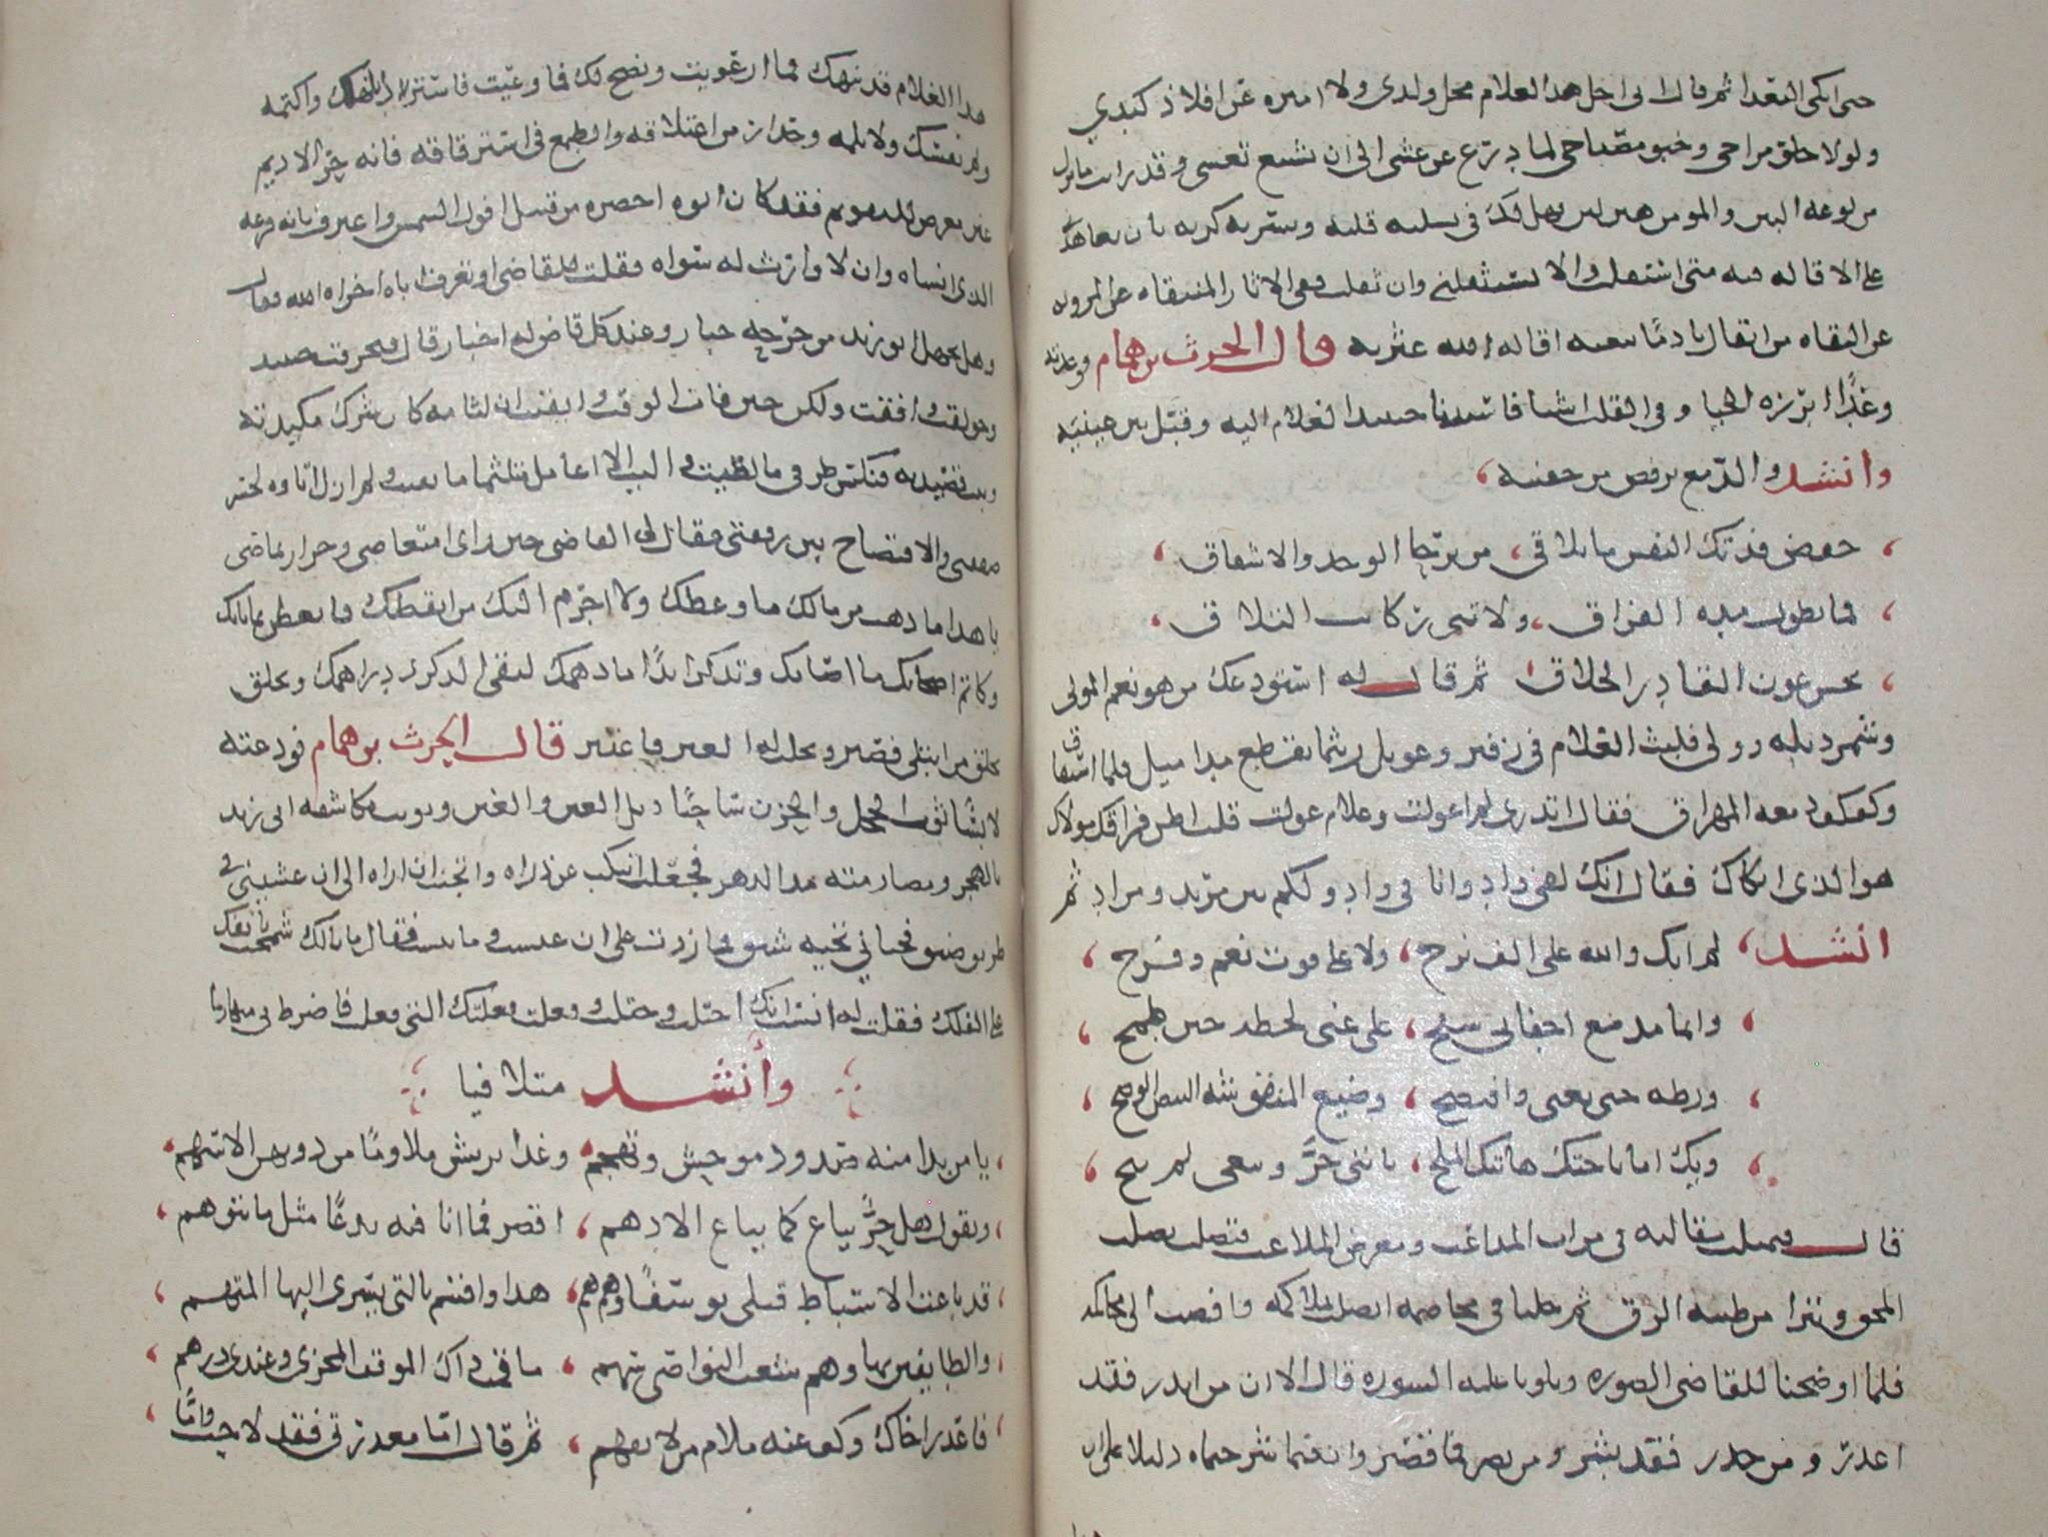 حتى ابكى البعدا ثم قال انى احل هذا الغلام محل ولدى ولا اميزه عن افلاذ كبدي
ولولا خلو مراحى وخبو مصباحى لما درج عن عشى الى ان يشيع نعشى وقد رايت ما نزل
من لوعه البين والمومن هين لين فهل لك فى تسليه قلبه وتسريه كربه بان تعاهده
على الاقاله فيه متى استقلت والا تستثقلنى وان ثقلت ففى الاثار المنتقاه عن المرويه
عن الثقاه من اقال نادما بيعته اقاله الله عثرته قال الحرث بن همام فوعدته
وعدا ابرزه الحيا وفى القلب اشيا فاستدنا حينيد الغلام اليه وقبل بين عينيه
وانشد والدمع يرفض من جفنيه
خفض فدتك النفس ما تلاقى من برحا الوجد والاشفاق
فما تطول مده الفراق ولا تنى ركايب التلاق
بحسن عون القادر الخلاق ثم قال له استودعك من هو نعم المولى
وشمر ذيله وولى فلبث الغلام فى زفير وعويل ريثما يقطع مدا ميل فلما استفاق
وكفكف دمعه المهراق فقال اتدرى لم اعولت وعلام عولت قلت اظن فراق مولاك
هو الذى ابكاك فقال انك لفى واد وانا فى واد ولكم بين مريد ومراد ثم
انشد لم ابك والله على الف نزح ولا على فوت نعيم وفرح
وانما مدمع اجفانى سفح على غبى لحظه حين طمح
ورطه حتى تعنى وافتضح وضيع المنقوشه البيض الوضح
ويك اما ناجتك هاتيك الملح بانني حر وبيعى لم يبح
قال فتمثلت مقاله فى مرات المداعب ومعرض الملاعب فتصلب تصلب
المحق وتبرا من طينه الرق ثم جلنا فى مخاصمه اتصلت بملاكمه وافضت الى محاكمه
فلما اوضحنا للقاضى الصوره وتلونا عليه السوره قال الا ان من انذر فقد
اعذر ومن حذر فقد بشر ومن بصر فما قصر وان فيما شرحتماه دليلا على ان
هذا الغلام قد نبهك فما ارعويت ونصح لك فما وعيت فاستر دا بلهك واكتمه
ولم نفسك ولا تلمه وحذار من اعتلاقه والطمع فى استرقاقه فانه حر الاديم
غير معرض للتقويم فقد كان ابوه احضره من قبيل افول الشمس واعترف بانه فرعه
الذى انشاه وان لا وارث له سواه فقلت للقاضى اوتعرف اباه اخزاه الله فقال
وهل يجهل ابو زيد من جرحه جبار وعند كل قاض له اخبار قال فتحرقت حينيد
وحولقت وافقت ولكن حين فات الوقت وايقنت ان لثامه كان شرك مكيدته
وبيت قصيدته فنكس طرفى ما لقيت واليت الا اعامل متلثما ما بقيت ولم ازل اتاوه لخسر
صفقتى والافتضاح بين رفقتى فقال لى القاضى حين راى امتعاضى وحر ارتماضى
يا هذا ما ذهب من مالك ما وعظك ولا اجرم اليك من ايقظك فاتعظ بما نابك
وكاتم اصحابك ما اصابك وتذكر ابدا ما دهمك لتقى الذكرى دراهمك وتخلق
بخلق من ابتلى فصبر وتجلت له العبر فاعتبر قال الحرث بن همام فودعته
لابسا ثوب الخجل والحزن ساحبا ذيل الغبن والغبن ونويت مكاشفه ابى زيد
بالهجر ومصارمته يد الدهر فجعلت اتنكب عن ذراه واتجنب ان اراه الى ان غشينى فى
طريق ضيق فحيانى تحيه شيق فما زدت على ان عبست وما نبست فقال ما بالك شمخت بانفك
على الفك فقلت له انسيت انك احتلت وختلت وفعلت فعلتك التى فعلت فاضرط بى متهازيا
وأنشد متلافيا
يا من بدا منه صدود موحش وتجهم وغدا يريش ملاوما من دونهن الاسهم
ويقول هل حر يباع كما يباع الادهم اقصر فما انا فيه بدعا مثل ما تتوهم
قد باعت الاسباط قبلى يوسفا وهم هم هذا واقسم بالتى يسرى اليها المتهم
والطايفين بها وهم شعث النواصى سهم ما قمت ذاك الموقف المخزى وعندى درهم
فاعذر اخاك وكف عنه ملام من لا يفهم ثم قال اما معذرتى فقد لاحت واما